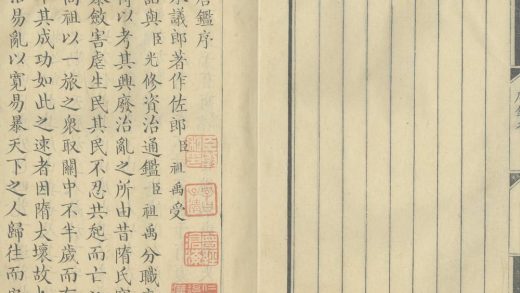 鑑序
議郎著作佐郎臣祖禹受
詔與臣光修資治通鑑臣祖禹分職
得以考其興廢治亂之所由昔隋氏窮
暴斂害虐生民其民不忍共起而亡
高祖以一旅之衆取關中不半歲而有
其成功如此之速者因隋大壞故
易亂以寬易暴天下之人歸往而